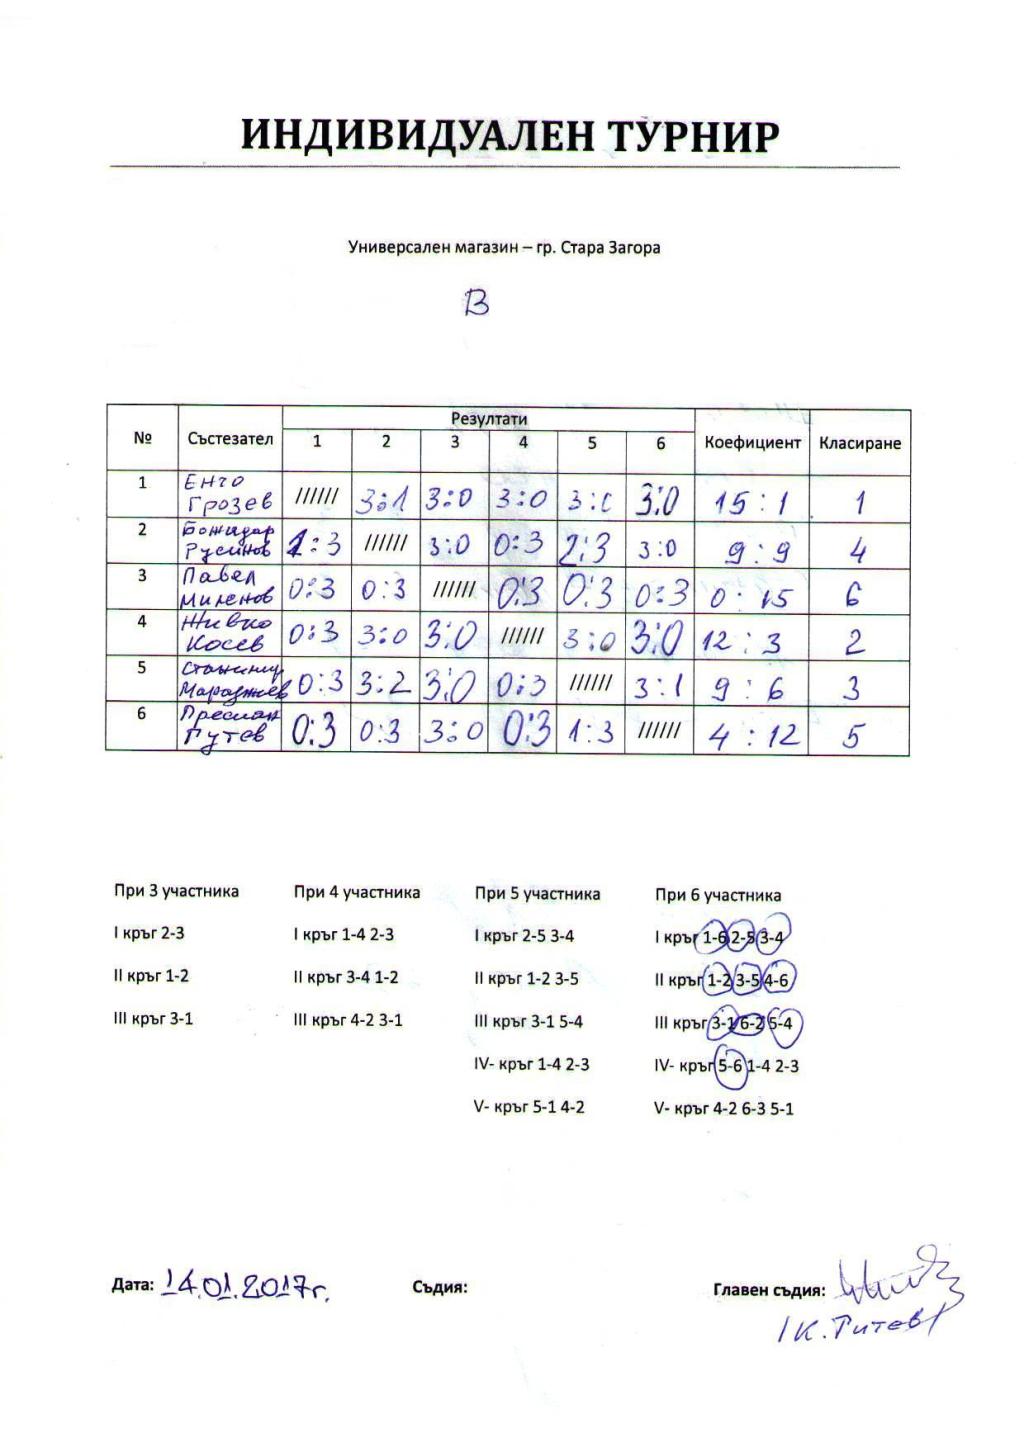 ИНДИВИДУАЛЕН ТУРНИР
Универсален магазин – гр. Стара Загора
В
№ Състезател Резултати Коефициент Класиране
1 2 3 4 5 6
1 Енчо Грозев ////// 3:1 3:0 3:0 3:0 3:0 15:1 1
2 Божидар Русинов 1:3 ////// 3:0 0:3 2:3 3:0 9:9 4
3 Павел Миленов 0:3 0:3 ////// 0:3 0:3 0:3 0:15 6
4 Живко Косев 0:3 3:0 3:0 ////// 3:0 3:0 12:3 2
5 0:3 3:2 3:0 0:3 ////// 3:1 9:6 3
6 Пресиан Гутев 0:3 0:3 3:0 0:3 1:3 ////// 4:12 5
При 3 участника При 4 участника При 5 участника При 6 участника
I кръг 2-3 I кръг 1-4 2-3 I кръг 2-5 3-4 I кръг 1-6 2-5 3-4
II кръг 1-2 II кръг 3-4 1-2 II кръг 1-2 3-5 II кръг 1-2 3-5 4-6
III кръг 3-1 III кръг 4-2 3-1 III кръг 3-1 5-4 III кръг 3-1 6-2 5-4
IV- кръг 1-4 2-3 IV- кръг 5-6 1-4 2-3
V- кръг 5-1 4-2 V- кръг 4-2 6-3 5-1
Дата: 14.01.2017г. Съдия: Главен съдия:
/К. Титев/